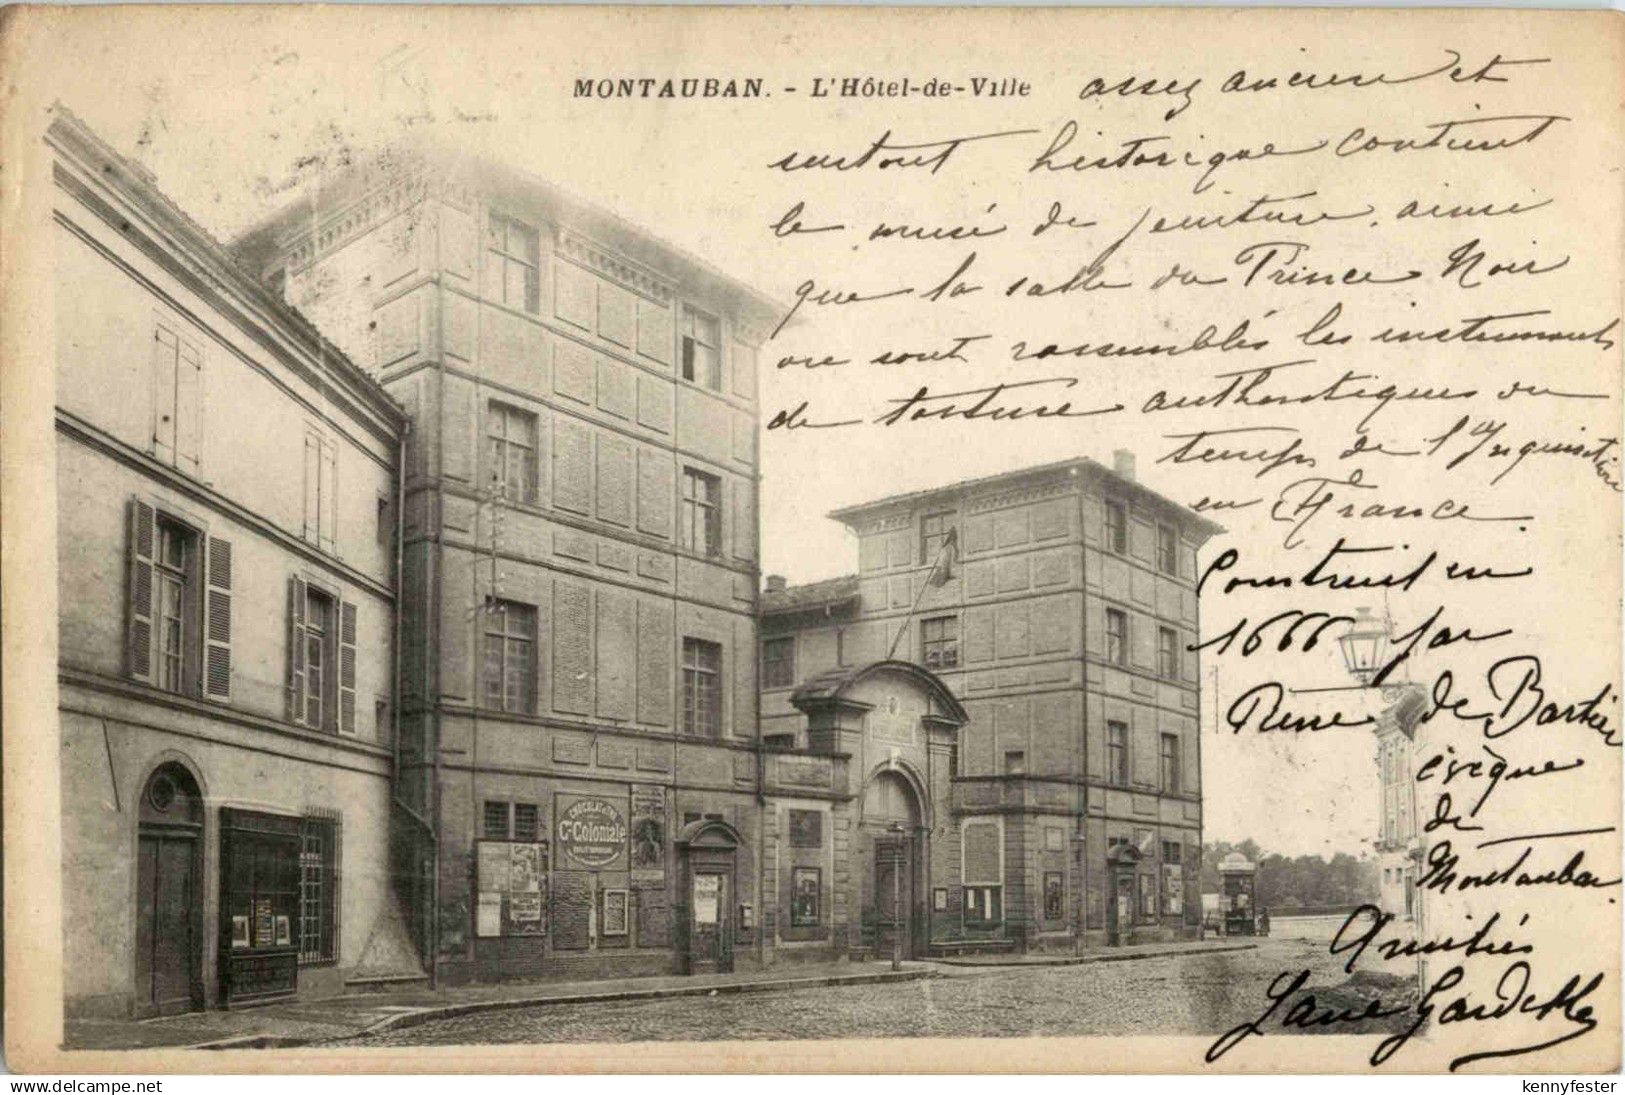 MONTAUBAN. - L'Hôtel-de-Ville
assez ancien et
surtout historique contient
le musé de peinture, ainsi
que la salle du Prince Noir
ou sont rassemblés les instruments
de torture authentiques du
temps de l'Inquisition
en France.
Construit en
1666 par
René de Bertier
évêque
de
Montauban
Amitiés
Jane
CHOCOLAT
Cie Coloniale
delcampe.net
kennyfester